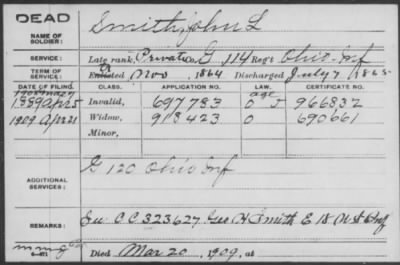 DEAD
NAME OF SOLDIER:
Smith, John L
SERVICE:
Late rank, Private Co. G, 114 Reg't Ohio Inf
TERM OF SERVICE:
Enlisted Nov, 1864 Discharged July 7, 1865
DATE OF FILING. CLASS. APPLICATION NO. LAW. CERTIFICATE NO.
1889 Apr 5 Invalid, 697783 age 0 J 966832
1909 Apr 21 Widow, 918423 0 690661
Minor,
ADDITIONAL SERVICES:
G 120 Ohio Inf
REMARKS:
CC 323627 Geo H Smith E 18 U.S. Inf
Died Mar 20, 1909, at